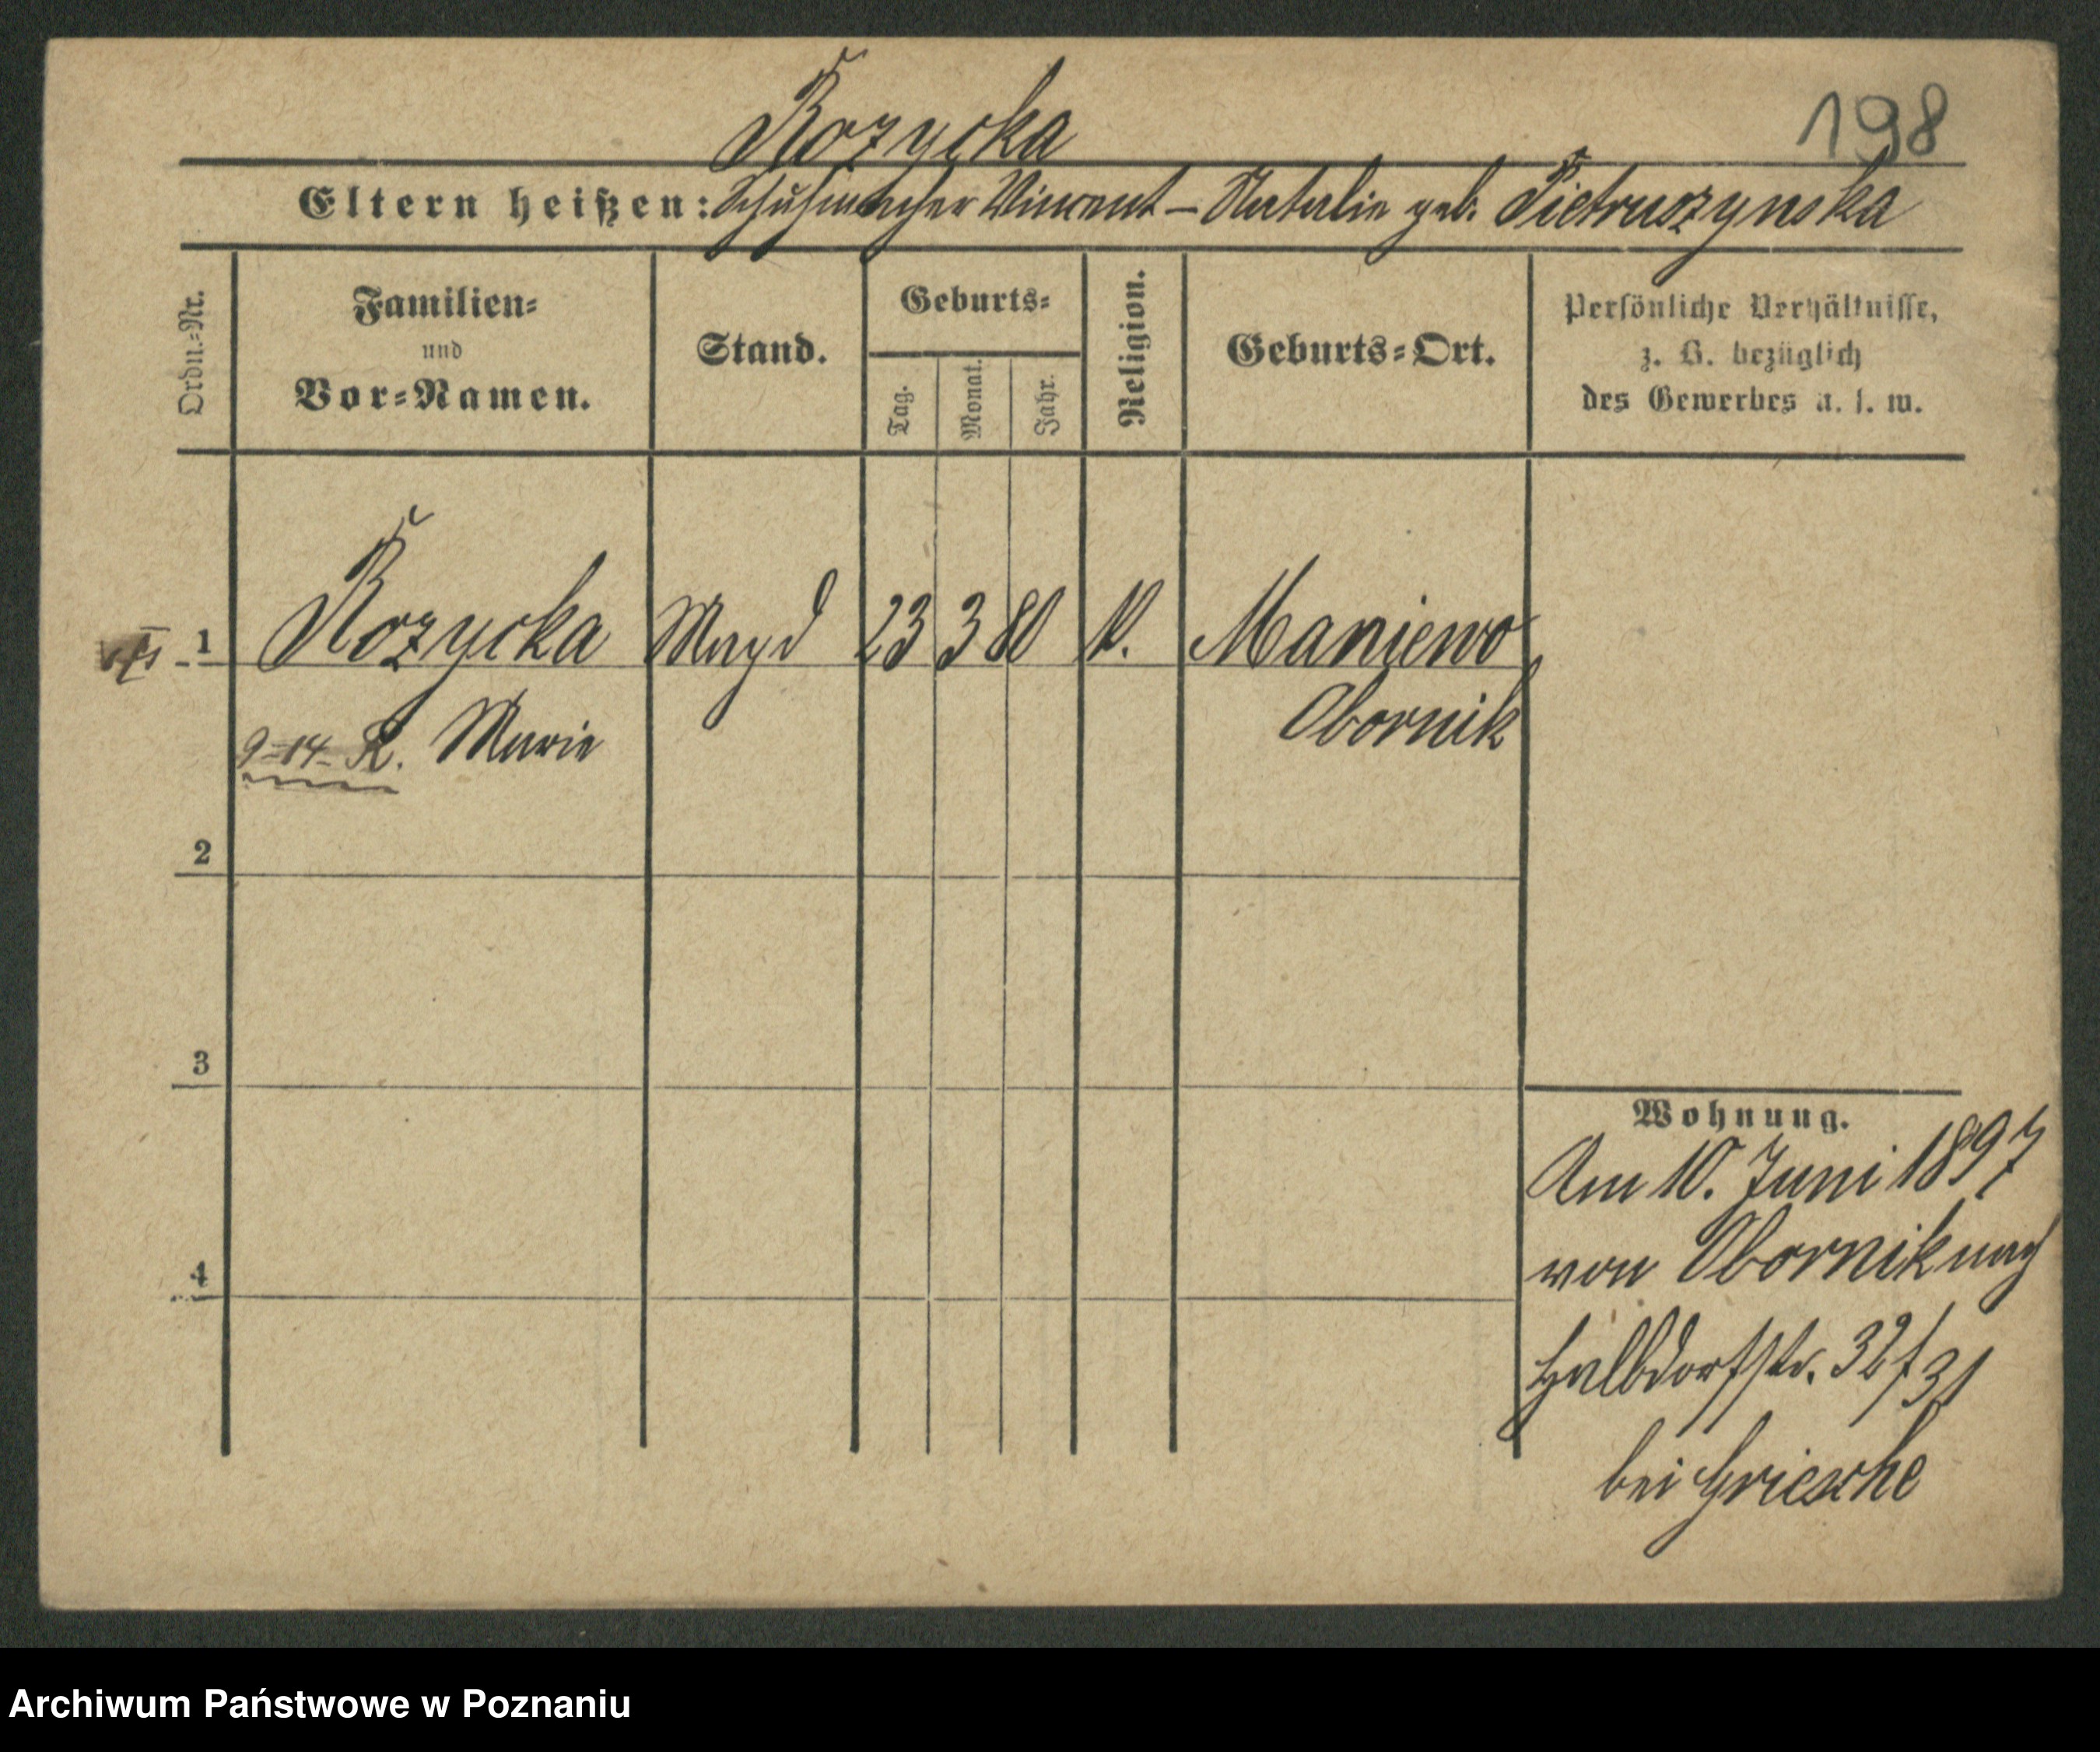 Rozycka
198
Eltern heißen: Schuhmacher Vincent – Natalie geb. Pietruszynska
Ordn.-Nr.
Familien-
und
Vor-Namen.
Stand.
Geburts-
Tag.
Monat.
Jahr.
Religion.
Geburts-Ort.
Persönliche Verhältnisse,
z. B. bezüglich
des Gewerbes u. s. w.
1 Rozycka Magd 23 3 80 K. Maniewo
9-14- R. Marie Obornik
2
3
4
Wohnung.
Am 10. Juni 1897
von Obornik nach
Halbdorfstr. 32/31
bei Griesche
Archiwum Państwowe w Poznaniu